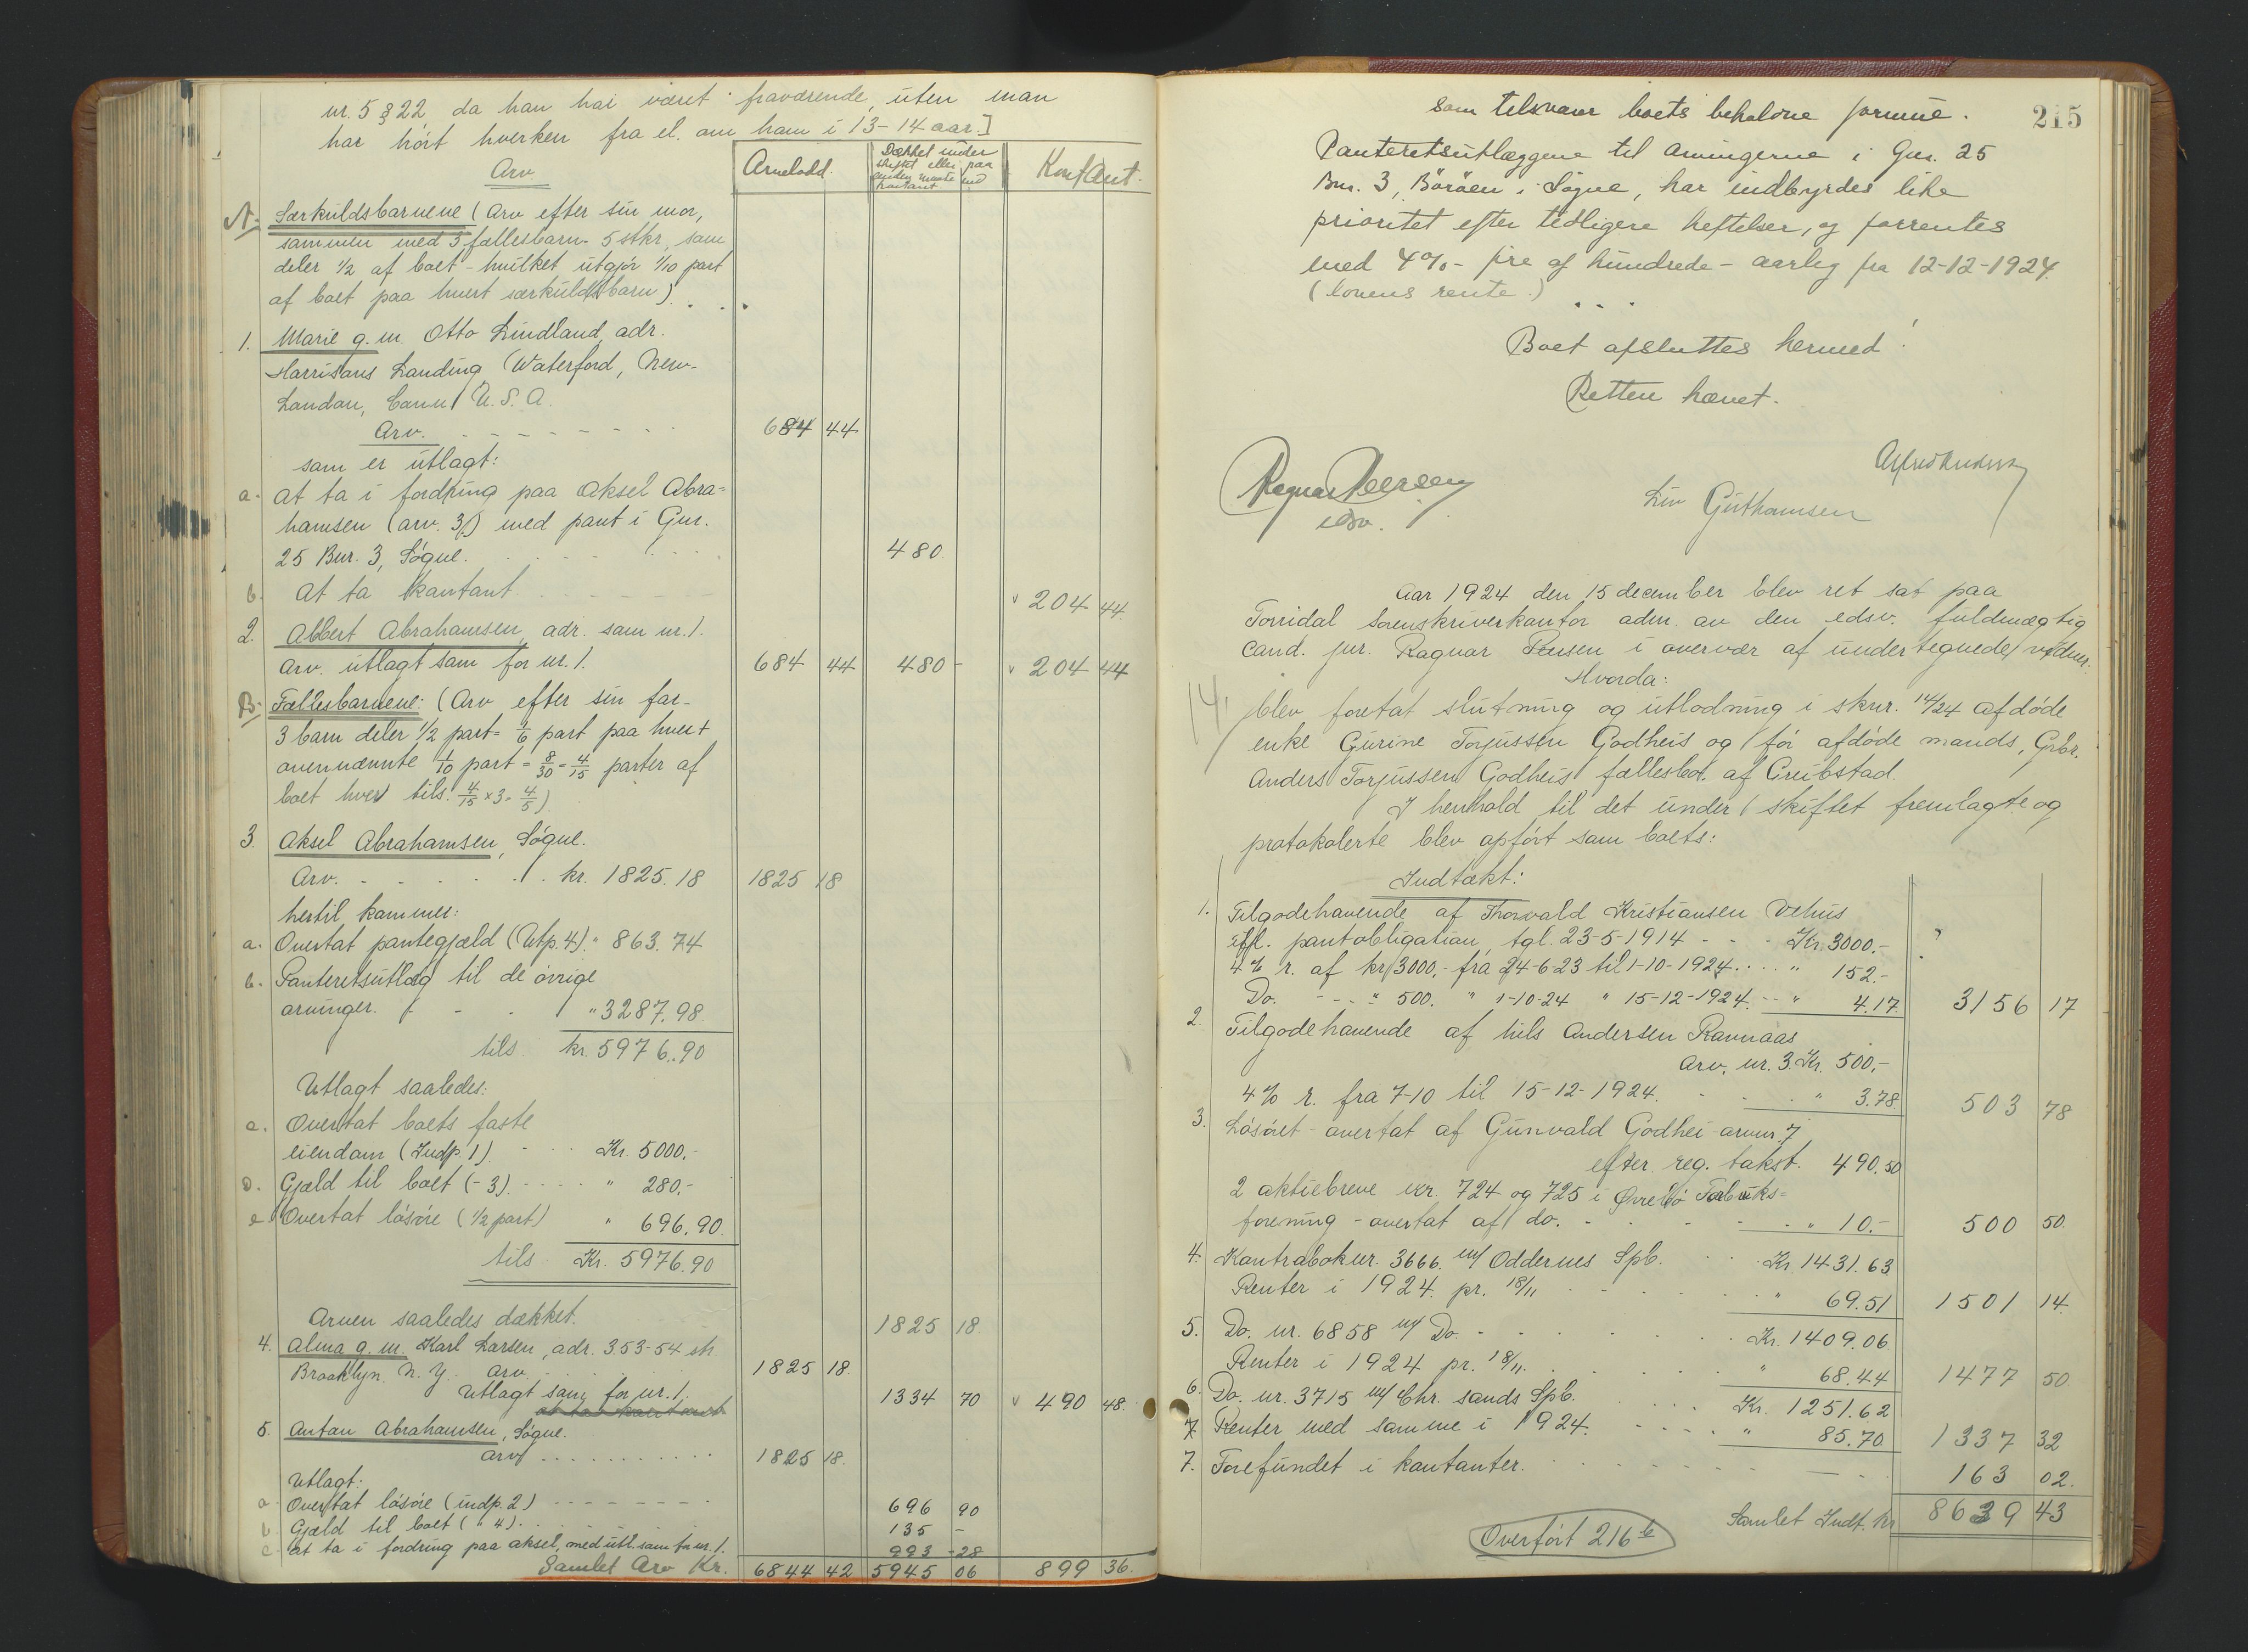 nr. 5 § 22, da han har været fraværende, uten man
har hört hverken fra el. om ham i 13-14 aar.]
Arv
Arvelodd.
Dækket under skiftet eller paa anden maate end kontant
Kontant.
A. Særkuldsbarnene (Arv efter sin mor,
sammen med 3 fællesbarn - 5 stkr, som
deler 1/2 af boet - hvilket utgjör 1/10 part
af boet paa hvert særkuldsbarn).
1. Marie g. m. Otto Lindland, adr.
Harrisons Landing (Waterford, New-
London, Conn U.S.A.
Arv. 684 44
som er utlagt:
a. At ta i fordring paa Aksel Abra=
hamsen (arv. 3) med pant i Gnr.
25 Bnr. 3, Sögne. 480
b. At ta kontant v 204 44.
2. Albert Abrahamsen, adr. som nr. 1.
Arv. utlagt som for nr. 1. 684 44 480 - v 204 44
B. Fællesbarnene: (Arv efter sin far-
3 barn deler 1/2 part = 1/6 part paa hvert
ovennævnte 1/10 part = 8/30 = 4/15 parter af
boet hver tils. 4/15 x 3 = 4/5)
3. Aksel Abrahamsen, Sögne.
Arv. kr. 1825.18 1825 18
hertil kommer:
a. Overtat pantegjæld (Utp. 4). " 863.74
b. Panteretsutlæg til de övrige
arvinger. " 3287.98
tils kr. 5976.90
Utlagt saaledes:
c. Overtat boets faste
eiendom (Indp. 1). Kr. 5000.-
d. Gjæld til boet (- 3). " 280.-
e. Overtat lösöre (1/2 part) " 696.90
tils Kr. 5976.90
Arven saaledes dækket. 1825 18
4. Alma g. m. Karl Larsen, adr. 353-54 str.
Brooklyn. N. Y. arv. 1825 18.
Utlagt som for nr. 1. 1334 70 v 490 48.
5. Antan Abrahamsen, Sögne.
arv 1825 18.
Utlagt:
a. Overtat lösöre (indp. 2) 696 90
b. Gjæld til boet ( " 4). 135 -
c. At ta i fordring paa Aksel, med utl. som for nr. 1. 993 - 28
Samlet Arv Kr. 6844 42 5945 06 899 36.
215
som tilsvarer boets beholdne formue.
Panteretsutlæggene til arvingerne i Gnr. 25
Bnr. 3, Böröen i Sögne, har indbyrdes like
prioritet efter tidligere heftelser, og forrentes
med 4% - fire af hundrede - aarlig fra 12-12-1924.
(lovens rente.)
Boet afsluttes hermed!
Retten hævet.
Alfred
Ragnar
edsv.
Liv Guthamsen
Aar 1924 den 15 december blev ret sat paa
Torridal Sorenskriverkontor adm. av den edsv. fuldmægtig
cand. jur. Ragnar i overvær af undertegnede vidner.
Hvorda:
14. blev foretat slutning og utlodning i sknr. 14/24 afdöde
enke Gurine Torjussen Godheis og för afdöde mands, Gbr.
Anders Torjussen Godheis fællesbo. af
I henhold til det under skiftet fremlagte og
protokolerte blev opfört som boets:
Indtækt:
1. Tilgodehavende af Thorvald Kristiansen Vehus
iffl. pantobligation, tgl. 23-5-1914 - - - Kr. 3000.-
4% r. af kr. 3000.- fra 24-6-23 til 1-10-1924. " 152.-
Do. - - " 500. " 1-10-24 " 15-12-1924. - - " 4.17 3156 17
2. Tilgodehavende af Nils Andersen Ravnaas
Arv. nr. 3. Kr. 500,-
4% r. fra 7-10 til 15-12-1924. " 3.78 503 78
3. Lösöret - overtat af Gunvald Godhei - arv nr 7
efter reg. takst. 490.50
2 aktiebreve nr. 724 og 725 i Øvrebö Fabriks=
forening - overtat af do. " 10.- 500 50.
4. Kontrabok nr. 3666. m/ Oddernes Spb. Kr. 1431.63
Renter i 1924. pr. 18/11 " 69.51 1501 14.
5. Do. nr. 6858 m/ Do. Kr. 1409.06
Renter i 1924 pr. 18/11. " 68.44 1477 50
6. Do. nr. 3715 m/ Chr. sands Spb. Kr. 1251.62
7. Renter med samme i 1924. " 85.70 1337 32
7. Forefundet i kontanter. 163 02.
Samlet Indt. kr 8639 43
Overfört 216 b